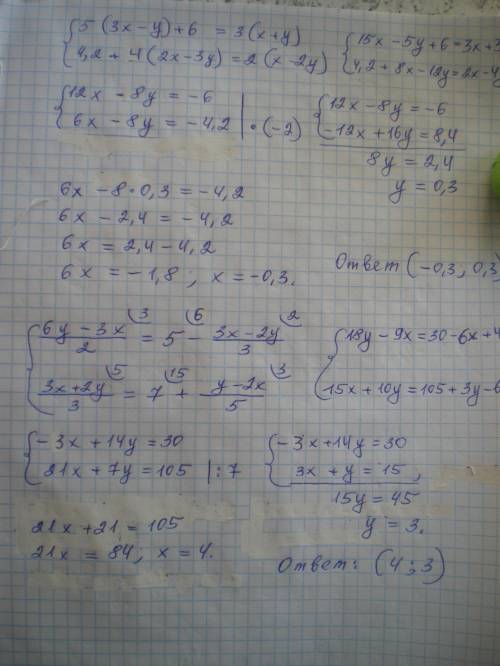 {5(3x-y)+6 = 3(x+y)
{4,2 + 4(2x-3y) = 2(x-2y)
{15x - 5y + 6 = 3x + 3
{4,2 + 8x - 12y = 2x - 4y
{12x - 8y = -6
{6x - 8y = -4,2 | · (-2)
{12x - 8y = -6
{-12x + 16y = 8,4
8y = 2,4
y = 0,3
6x - 8 · 0,3 = -4,2
6x - 2,4 = -4,2
6x = 2,4 - 4,2
6x = -1,8 ; x = -0,3.
Ответ (-0,3; 0,3)
{(6y - 3x)/2 (3 = 5 (6 - (3x - 2y)/3 (2
{(3x + 2y)/3 (5 = 7 (15 + (y - 2x)/5 (3
{18y - 9x = 30 - 6x + 4
{15x + 10y = 105 + 3y - 6
{-3x + 14y = 30
{21x + 7y = 105 | : 7
{-3x + 14y = 30
{3x + y = 15 ,
15y = 45
y = 3.
21x + 21 = 105
21x = 84; x = 4.
Ответ: (4; 3)